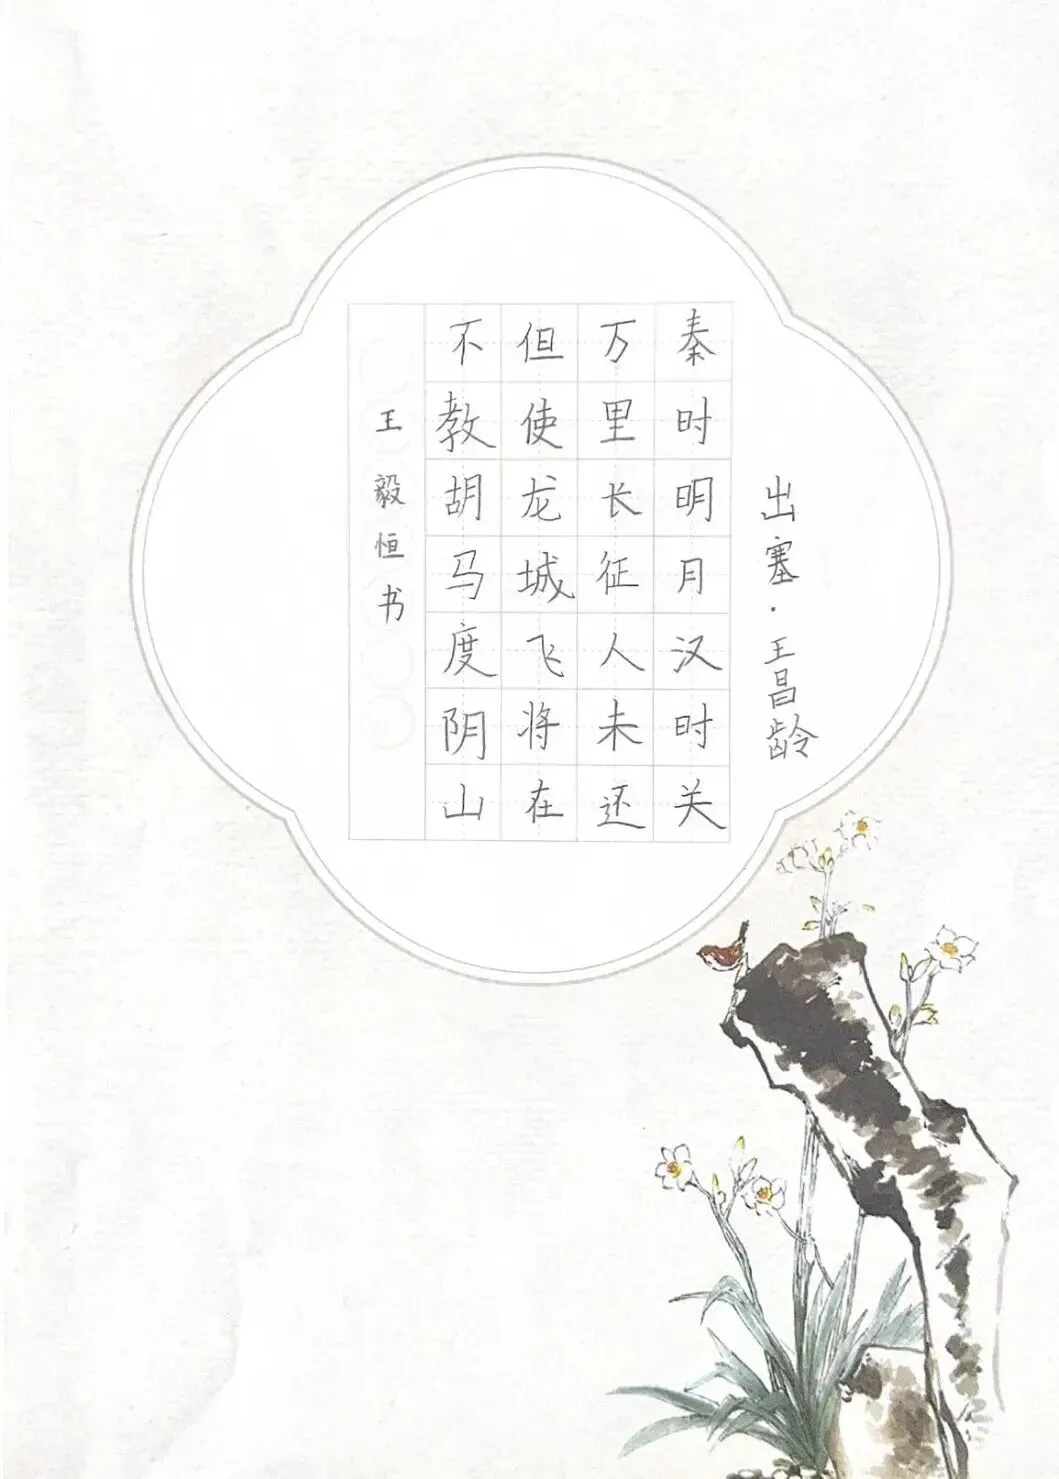 出塞·王昌龄
秦时明月汉时关
万里长征人未还
但使龙城飞将在
不教胡马度阴山
王毅恒书